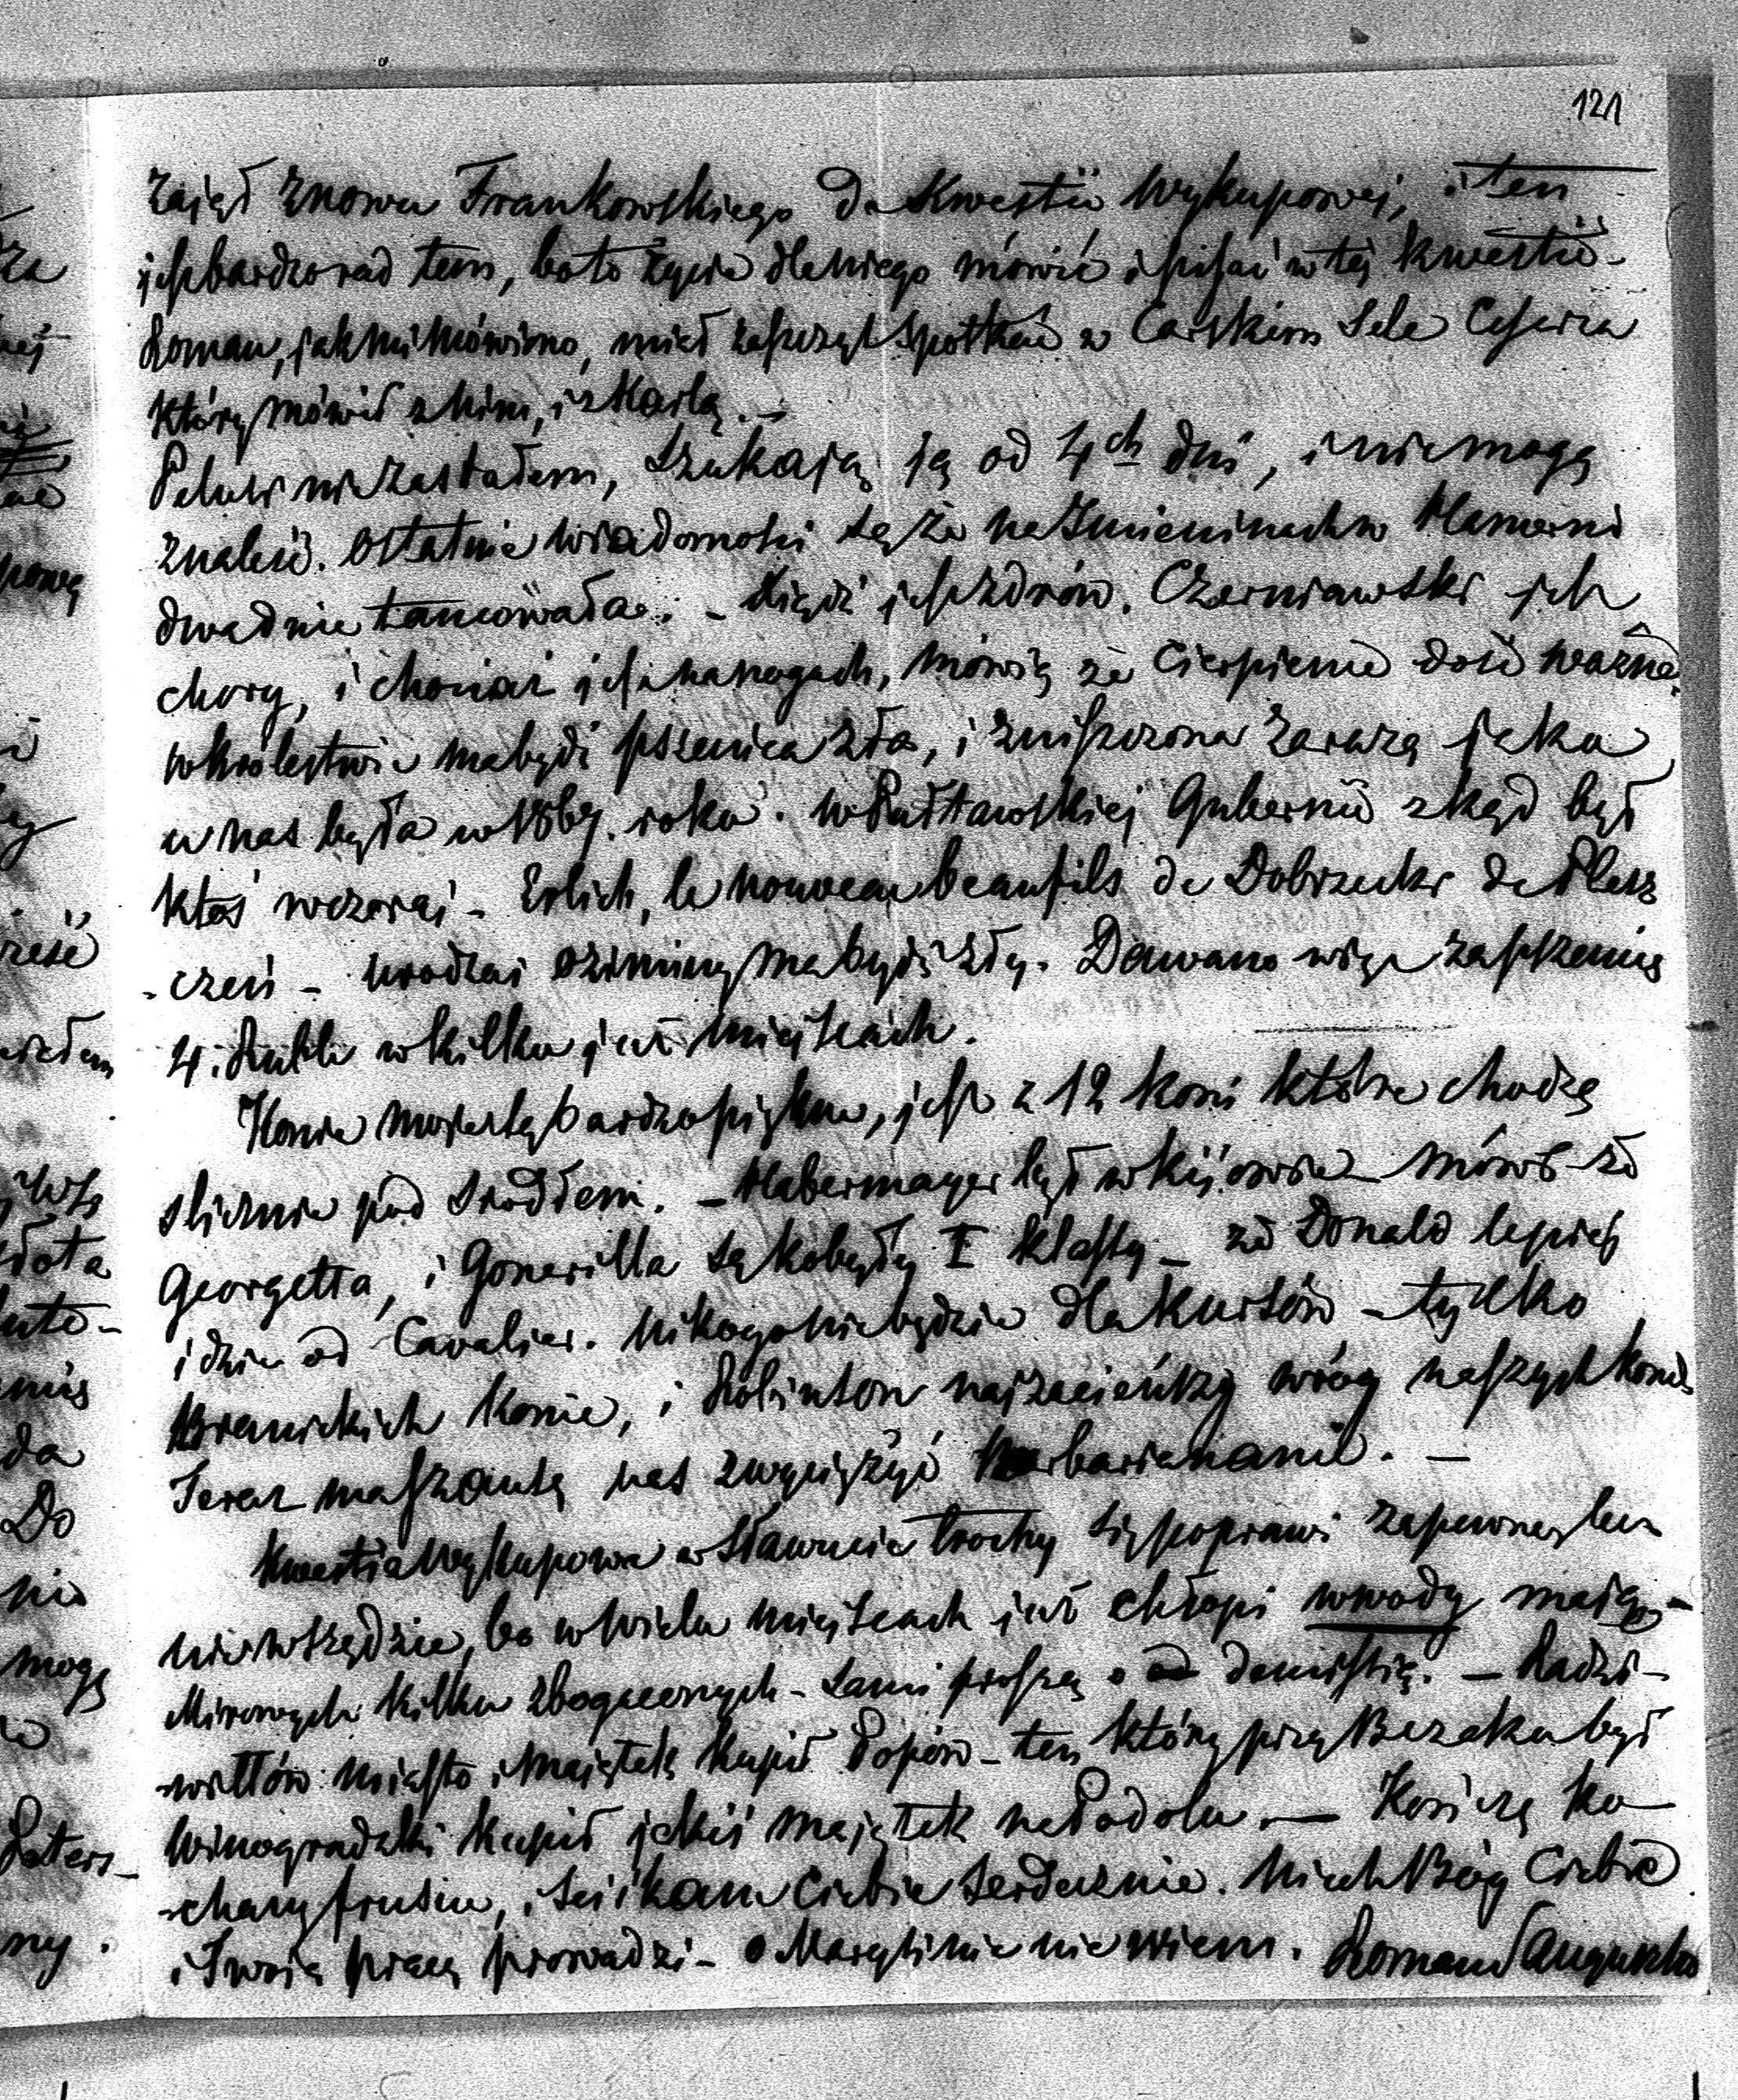 121
zajął znowu Frankowskiego do Kwestii Wykupowej, i ten
jest bardzo rad tem, bo to życie dla niego mówić i pisać w tej kwestii -
Roman, jak mi mówiono, miał zaszczyt spotkać w Carskiem Sele Cesarza
który mówił z nim, i z Karlą. -
nie zastałem, szukają ją od 4ch dni, i nie mogą
znaleść. Ostatnie wiadomości są że na Imieninach w
dwa dnie tancowała. - Książe jest zdrów. Czerniawski jest
chory, i chociaż jest na nogach, mówią że cierpienie dość ważne.
w Królestwie ma być pszenica zła, i zniszczona zarazą jaka
u nas była w 1867. roku. w Połtawskiej Gubernii zkąd był
ktoś wczoraj - Erlich, le nouveau beaufils de Dobrzecki de Plesz
-czeń - urodzaj oziminy ma być zły. Dawano więc za pszenicę
4. Ruble w kilku już miejscach.
Konie moje są bardzo piękne, jest z 12 koni które chodzą
ślicznie pod siodłem. - Habermayer był w Kijowie mówił że
Georgetta, i Gonerilla są kobyły I klassy - że Donald lepiej
idzie od Cavalier. Nikogo nie będzie dla kursów - tylko
Branickich konie, i Robinson najzacieńszy wróg naszych koni.
Teraz ma szansę nas zwyciężyć -
Kwestia Wykupowa w Sławucie trochę się poprawi zapewne, lecz
nie wszędzie, bo w wielu miejscach już chłopi wwody mają -
Mirowych kilku zbogaconych - sami proszą o demissię. - Radzi-
-wiłłów miasto i majątek kupił Popow - ten który przy Bezaku był
Winogradzki kupił jakiś majątek na Podolu. - Kończą ko-
-chany frusiu, i ściskam Ciebie serdecznie. Niech Bóg Ciebie
i Twoją pracę prowadzi - o Marylinie nie wiem. Roman Sanguszko